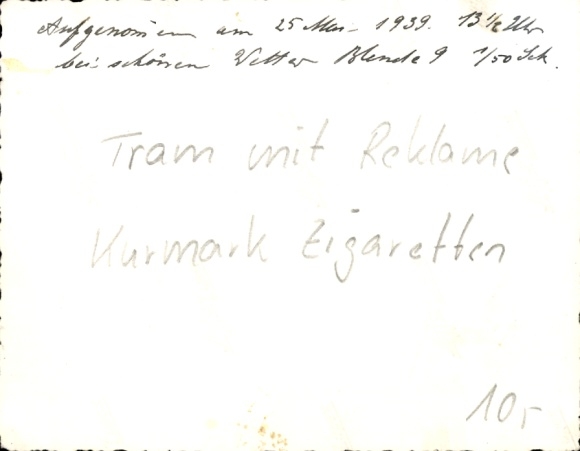 Aufgenommen am 25 Mai 1939. 13½ Uhr
bei schönen Wetter Blende 9 1/50 Sek.
Tram mit Reklame
Kurmark Zigaretten
10,-